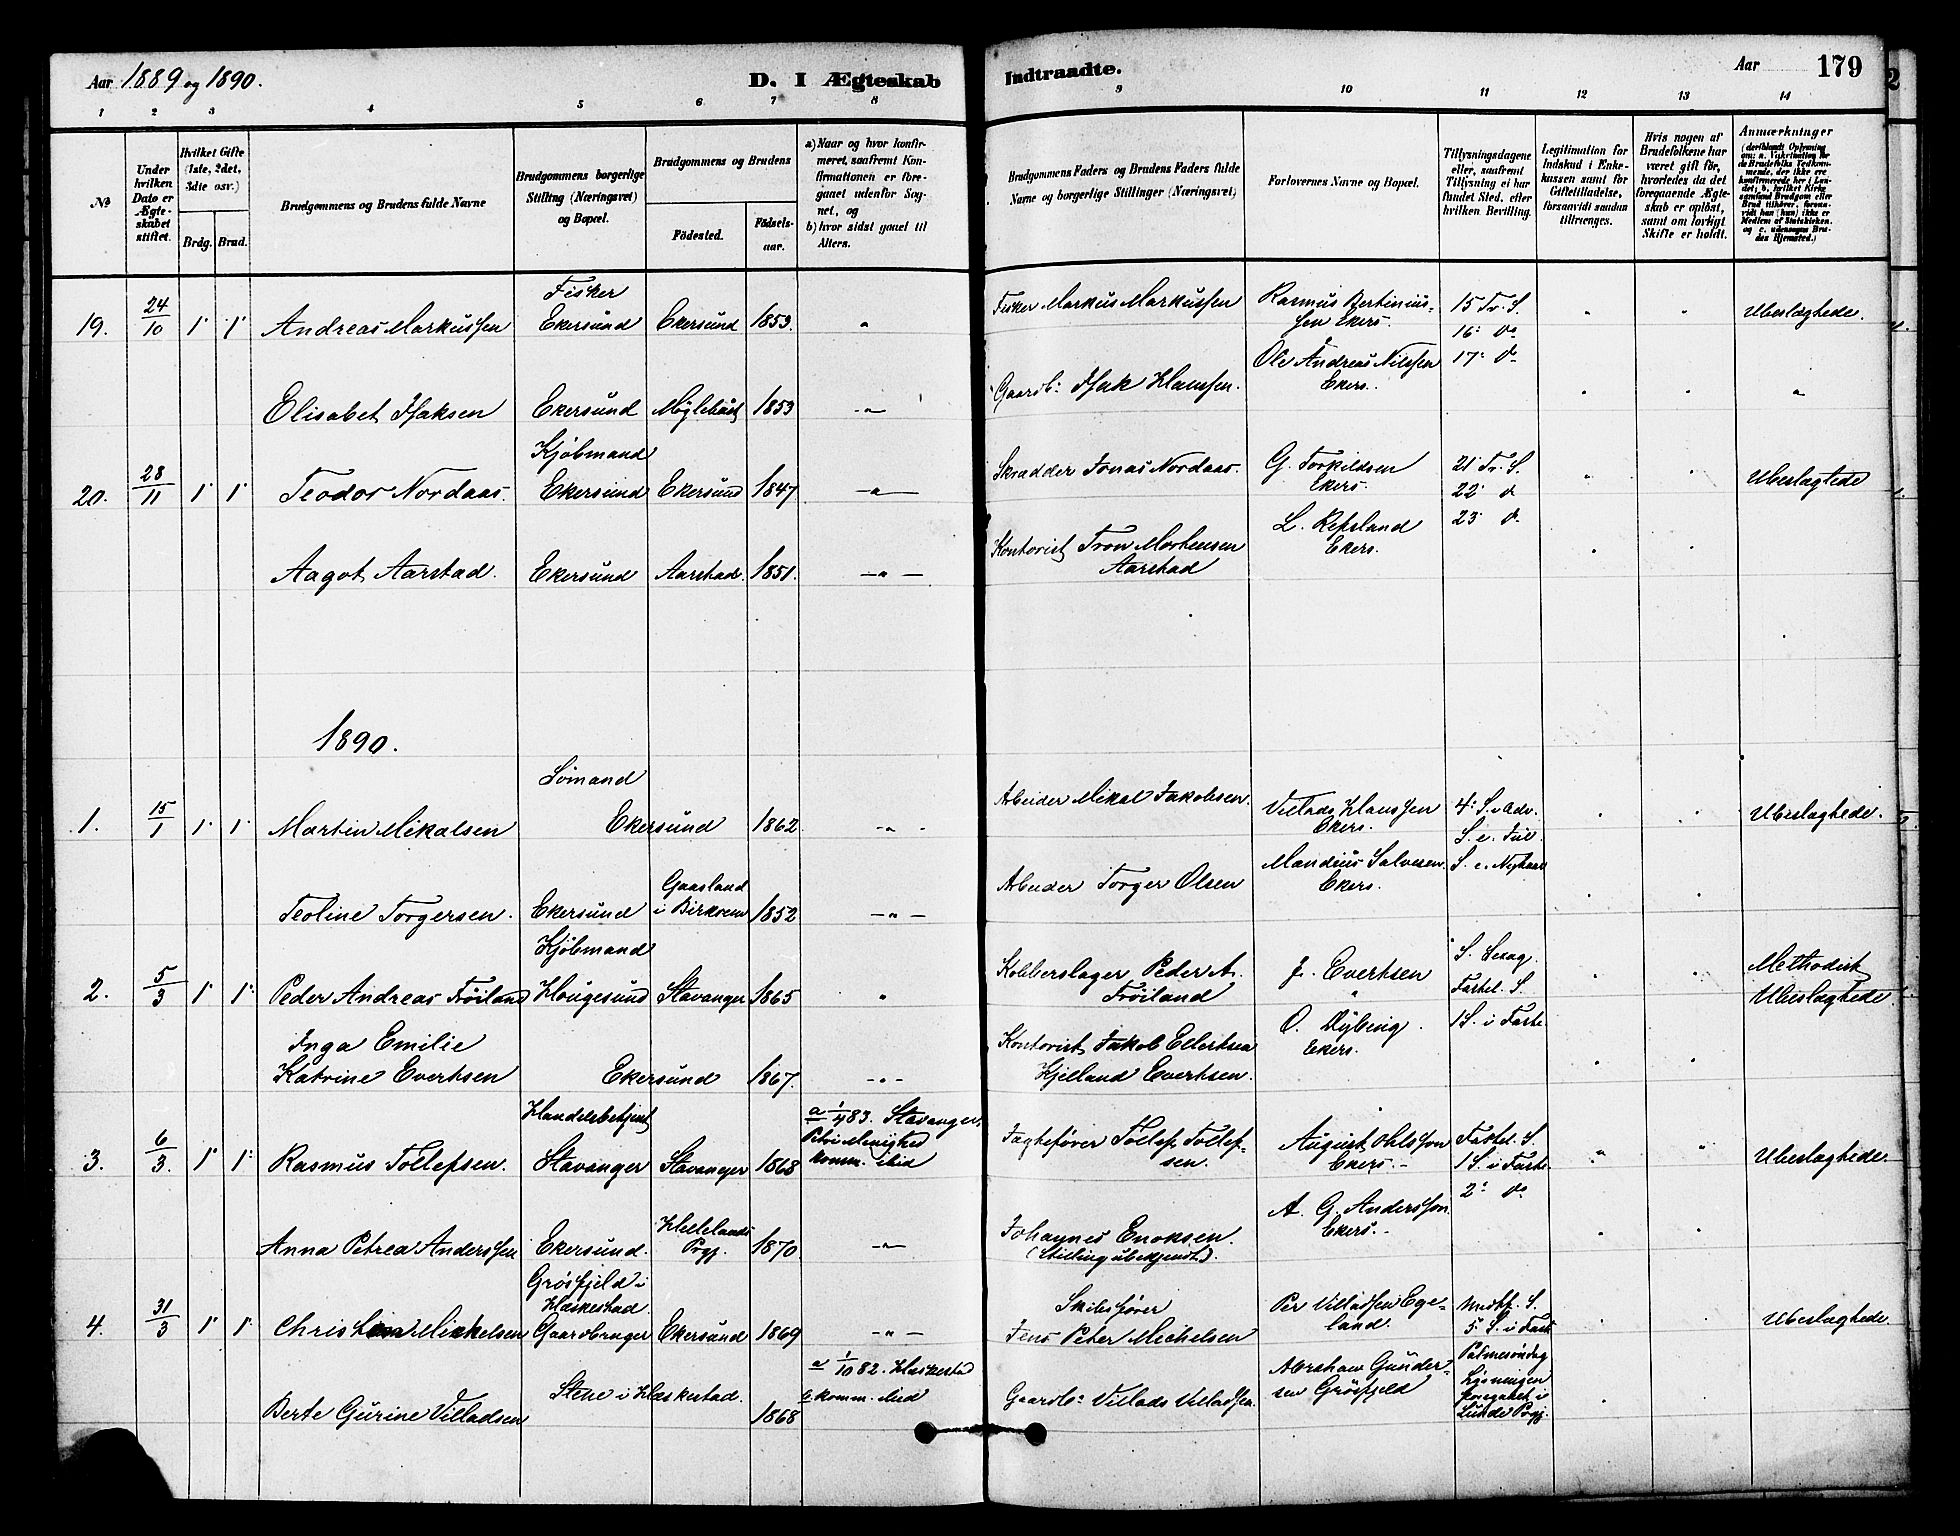 Aar 1889 og 1890.
D. I Ægteskab
Indtraadte.
Aar
179
1 2 3 4 5 6 7 8 9 10 11 12 13 14
No
Under hvilken Dato er Ægteskabet stiftet.
Hvilket Gifte (1ste, 2det, 3die osv.)
Brdg. Brud.
Brudgommens og Brudens fulde Navne
Brudgommens borgerlige Stilling (Næringsvei) og Bopæl.
Brudgommens og Brudens
Fødested.
Fødselsaar.
a) Naar og hvor konfirmeret, saafremt Konfirmationen er foregaaet udenfor Sognet, og
b) hvor sidst gaaet til Alters.
Brudgommens Faders og Brudens Faders fulde Navne og borgerlige Stillinger (Næringsvei)
Forlovernes Navne og Bopæl.
Tillysningsdagene eller, saafremt Tillysning ei har fundet Sted, efter hvilken Bevilling.
Legitimation for Indskud i Enkekassen samt for Giftetilladelse, forsaavidt saadan tiltrænges.
Hvis nogen af Brudefolkene har været gift før, hvorledes da det foregaaende Ægteskab er opløst, samt om lovligt Skifte er holdt.
Anmærkninger
19. 24/10 1 1 Andreas Markussen Fisker Ekersund Ekersund 1853. " Fisker Markus Markussen Rasmus Bertiniussen Ekers. 15 Tr. S. 16: do 17: do " " Ubeslægtede.
Elisabet Isaksen Ekersund Møglebust 1853 " Gaardb: Isak Hanssen. Ole Andreas Nilssen Ekers. " " "
20. 28/11 1 1 Teodor Nordaas. Kjøbmand Ekersund Ekersund 1847 " Skrædder Jonas Nordaas. G. Torkildsen Ekers. 21 Tr. S. 22 do 23 do " " Ubeslægtede
Aagot Aarstad. Ekersund Aarstad. 1851. " Kontorist Tron Mortensen Aarstad L. Refsland Ekers. " "
1890.
1. 15/1 1 1 Martin Mikalsen Sømand Ekersund 1862 " Arbeider Mikal Jakobsen. Villads Hanssen Ekers. 4: S. i Adv. S. e. Jul. S. e. Nytaar " " Ubeslægtede.
Teoline Torgersen. Ekersund Gaasland i Birkrem 1852 " Arbeider Torger Olsen Mandius Salvesen Ekers. " "
2. 5/3 1 1 Peder Andreas Frøiland Kjøbmand Hougesund Stavanger 1865 " Kobberslager Peder A. Frøiland J. Evertsen " S. Sexag. Fastel. S. 1 S. i Faste. " " Methodist Ubeslægtede.
Inga Emilie Katrine Evertsen Ekersund 1867. " Kontorist Jakob Ellertsen Kjelland Evertsen. O. Dybing. Ekers. " "
3. 6/3. 1 1 Rasmus Tollefsen. Handelsbetjent Stavanger Stavanger 1868 a 1/4 83. Stavanger, Petri Menighed komm. ibid Jagtefører Tollef Tollefsen. August Ohlsson Ekers. Fastel. S. 1 S. i Faste 2: do " " Ubeslægtede.
Anna Petrea Anderssen Ekersund. Hellelands Prgj. 1870. " Johannes Enoksen. (Stilling ubekjendt). A. G. Andersson. Ekers. " "
4. 31/3 1 1 Christian Mickelsen Grøsfjeld i Heskestad. Gaardbruger Ekersund 1869 " Skibsfører Jens Peter Michelsen Per Villadsen Egeland. Midtf. S. 5. S. i Fast Palmesøndag " " Ubeslægtede.
Berte Gurine Villadsen Stene i Heskestad. 1868 a 1/10 82. Heskestad b. komm. ibid Gaardb: Villads Villadsen Abraham Gundersen Grøsfjeld Lysningen foregaaet i Lunde Prgj. " "